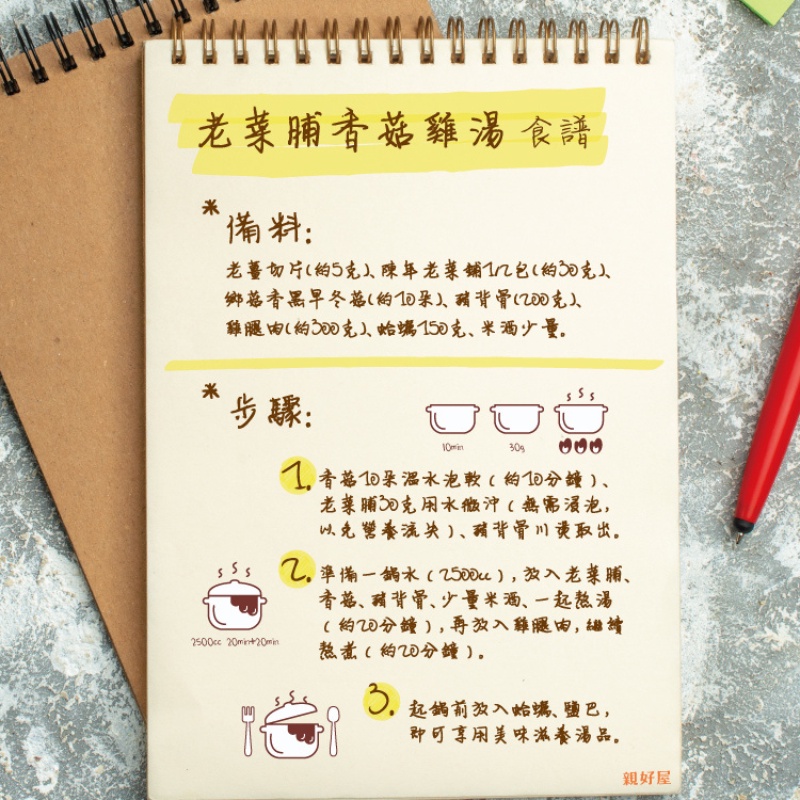 老菜脯香菇雞湯 食譜
* 備料:
老薑切片(約5克)、陳年老菜鋪1/2包(約30克)、
鄉菇香黑早冬菇(約10朵)、豬背骨(200克)、
雞腿肉(約300克)、蛤蠣150克、米酒少量。
* 步驟:
10min 30g
1. 香菇10朵溫水泡軟(約10分鐘)、
老菜脯30克用水微沖(無需浸泡,
以免營養流失)、豬背骨川燙取出。
2. 準備一鍋水(2500cc),放入老菜脯、
香菇、豬背骨、少量米酒、一起熬湯
(約20分鐘),再放入雞腿肉,繼續
熬煮(約20分鐘)。
2500cc 20min+20min
3. 起鍋前放入蛤蠣、鹽巴,
即可享用美味滋養湯品。
親好屋